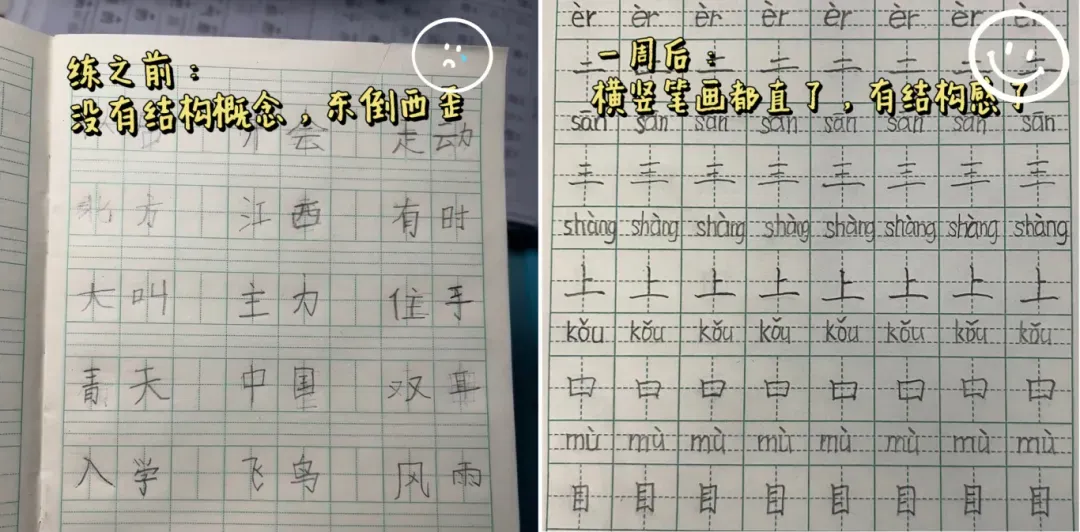 练之前：
没有结构概念，东倒西歪
会 走动
北方 江西 有时
大叫 主力 住手
青天 中国 双耳
入学 飞鸟 风雨
èr èr èr èr èr èr èr èr
一周后：
二 二 二 二 二 二 二 二
横竖笔画都直了，有结构感了
sān sān sān sān sān sān sān sān
三 三 三 三 三 三 三 三
shàng shàng shàng shàng shàng shàng shàng shàng
上 上 上 上 上 上 上 上
kǒu kǒu kǒu kǒu kǒu kǒu kǒu kǒu
口 口 口 口 口 口 口 口
mù mù mù mù mù mù mù mù
目 目 目 目 目 目 目 目